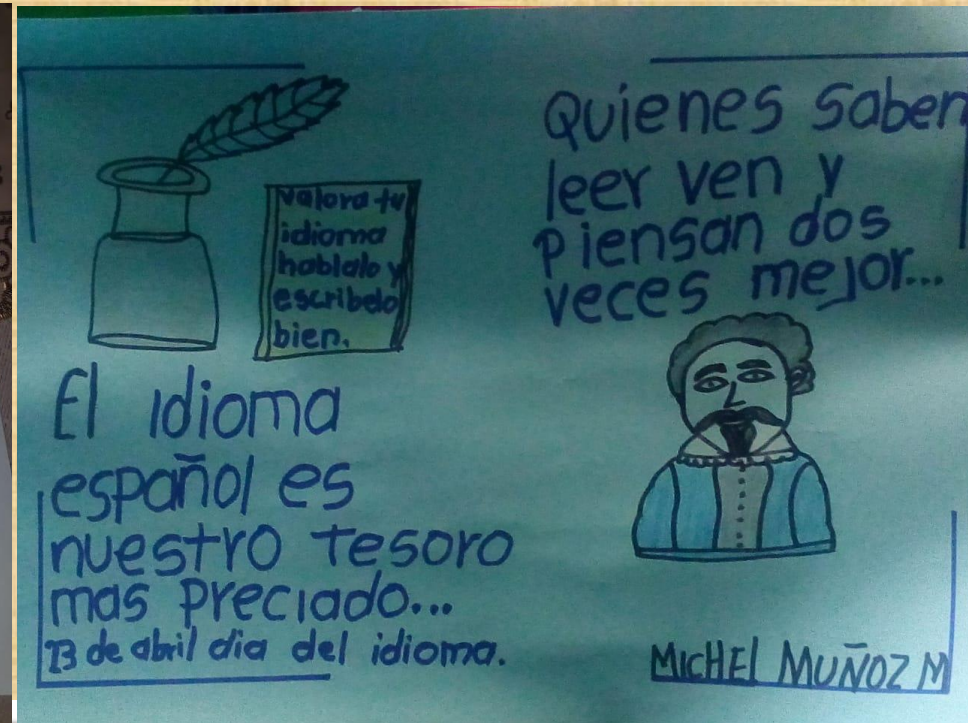 valora tu
idioma
hablalo y
escribelo
bien.
El idioma
español es
nuestro tesoro
mas preciado...
23 de abril dia del idioma.
Quienes saben
leer ven y
piensan dos
veces mejor...
MICHEL MUÑOZ M